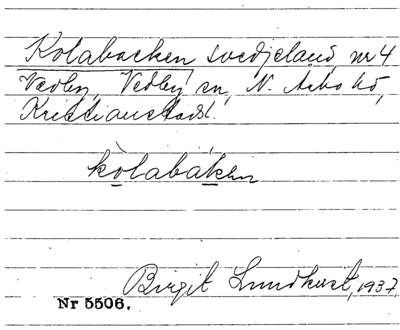 Kolabacken svedjeland nr 4
Vedby, Vedby sn, N. Åsbo hd,
Kristianstads l.
kòlabáken
Birgit Lundkvist, 1937.
Nr 5506.